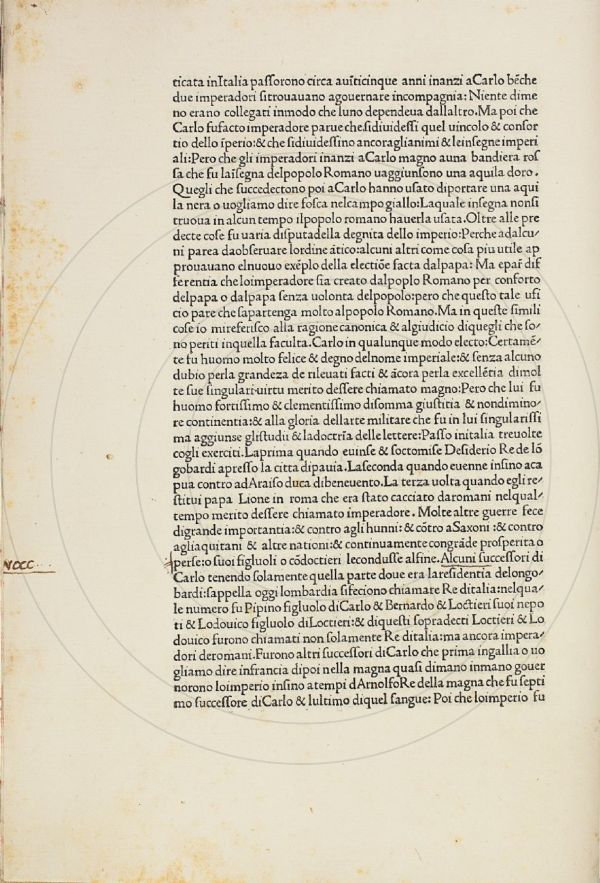 ticata inItalia paſſorono circa auīticinque anni inanzi aCarlo bēche
due imperadori ſitrouauano agouernare incompagnia: Niente dime
no erano collegati inmodo che luno dependeua dallaltro. Ma poi che
Carlo fufacto imperadore parue cheſidiuideſſi quel uincolo & conſor
tio dello īperio:& che ſidiuideſſino ancoraglianimi & leinſegne imperi
ali: Pero che gli imperadori inanzi aCarlo magno auna bandiera roſ
ſa che fu laīſegna delpopolo Romano uaggiunſono una aquila doro.
Quegli che ſuccedectono poi aCarlo hanno uſato diportare una aqui
la nera o uogliamo dire foſca nelcampo giallo: Laquale inſegna nonſi
truoua in alcun tempo ilpopolo romano hauerla uſata. Oltre alle pre
decte coſe fu uaria diſputadella degnita dello imperio: Perche adalcu/
ni parea daobſeruare lordine ātico: alcuni altri come coſa piu utile ap
prouauano elnuouo exēplo della electiōe facta dalpapa: Ma epar̄ dif
ferentia che loimperadore ſia creato dalpoplo Romano per conforto
delpapa o dalpapa ſenza uolonta delpopolo: pero che queſto tale ufi
cio pare che ſapartenga molto alpopolo Romano. Ma in queſte ſimili
coſe io mireferiſco alla ragione canonica & algiudicio diquegli che ſo/
no periti inquella faculta. Carlo in qualunque modo electo: Certamē/
te fu huomo molto felice & degno delnome imperiale:& ſenza alcuno
dubio perla grandeza de rileuati facti & ācora perla excellētia dimol
te ſue ſingulari uirtu merito deſſere chiamato magno: Pero che lui fu
huomo fortiſſimo & clementiſſimo diſomma giuſtitia & nondimino/
re continentia:& alla gloria dellarte militare che fu in lui ſingulariſſi
ma aggiunſe gliſtudii & ladoctrīa delle lettere: Paſſo initalia treuolte
cogli exerciti. Laprima quando euinſe & ſoctomiſſe Deſiderio Re de lō
gobardi apreſſo la citta dipauia. Laſeconda quando euenne inſino aca
pua contro adAraiſo duca dibeneuento. La terza uolta quando egli re/
ſtitui papa Lione in roma che era ſtato cacciato daromani nelqual/
tempo merito deſſere chiamato imperadore. Molte altre guerre fece
digrande importantia:& contro agli hunni:& cōtro aSaxoni :& contro
agliaquitani & altre nationi:& continuamente congrāde proſperita o
perſe: o ſuoi figluoli o cōdoctieri lecondusse alfine. Alcuni ſucceſſori di
NOCC
Carlo tenendo ſolamente quella parte doue era lareſidentia delongo/
bardi: ſappella oggi lombardia ſifeciono chiamare Re ditalia: nelqua/
le numero fu Pipino figluolo diCarlo & Bernardo & Loctieri ſuoi nepo
ti & Lodouico figluolo diLoctieri:& diqueſti ſopradecti Loctieri & Lo
douico furono chiamati non ſolamente Re ditalia: ma ancora impera/
dori deromani. Furono altri ſucceſſori diCarlo che prima ingallia o uo
gliamo dire infrancia dipoi nella magna quaſi dimano inmano gouer
norono loimperio inſino a tempi dArnolfo Re della magna che fu ſepti
mo ſucceſſore diCarlo & lultimo diquel ſangue: Poi che loimperio fu